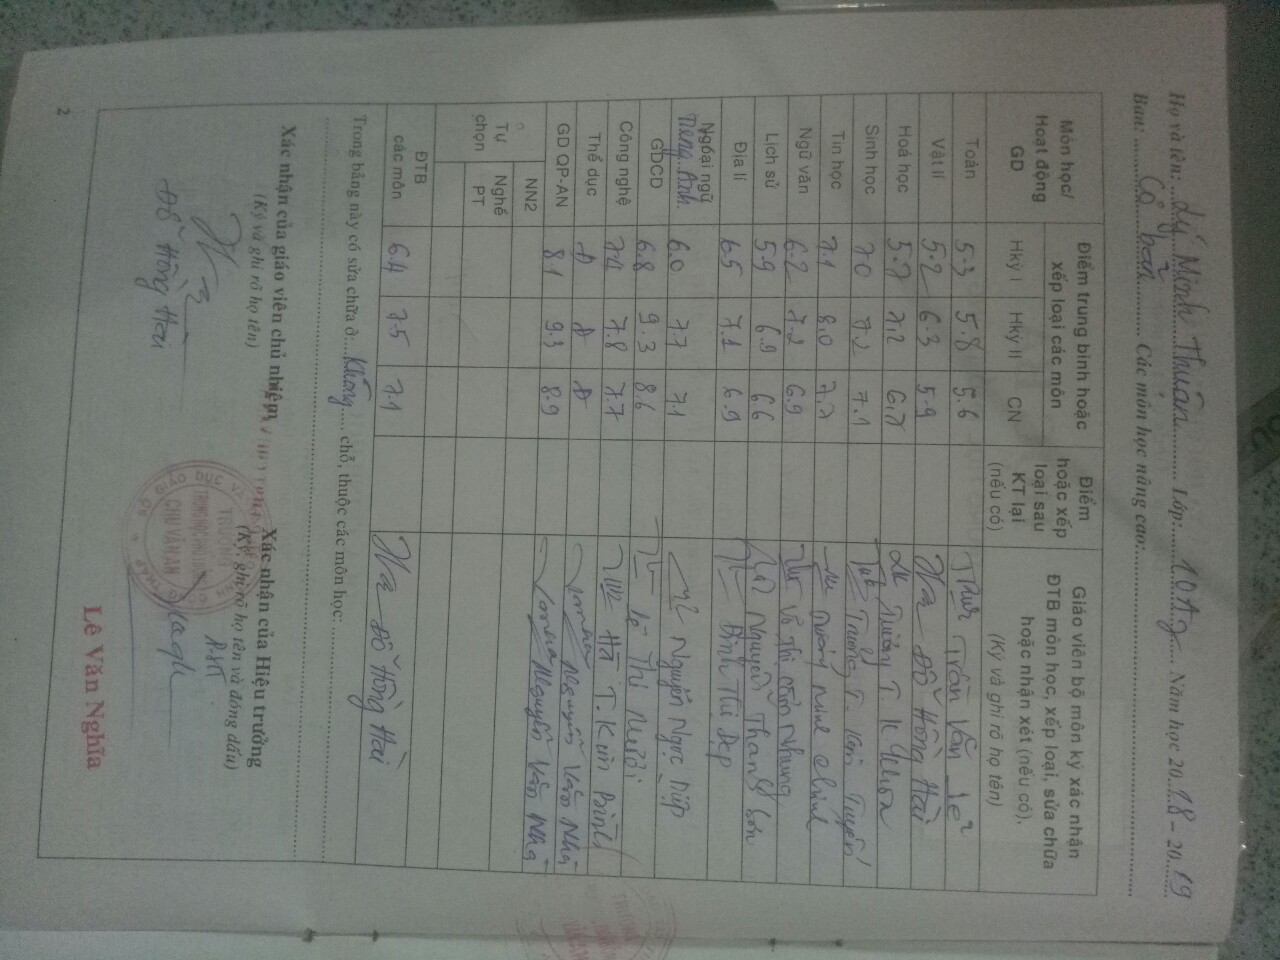 Họ và tên: Lý Minh Thuân Lớp: 10A7 Năm học 2018 - 2019
Ban: Cơ bản Các môn học nâng cao:
Môn học/ Hoạt động GD
Điểm trung bình hoặc xếp loại các môn
Hkỳ I Hkỳ II CN
Điểm hoặc xếp loại sau KT lại (nếu có)
Giáo viên bộ môn ký xác nhận ĐTB môn học, xếp loại, sửa chữa hoặc nhận xét (nếu có).
(Ký và ghi rõ họ tên)
Toán 5.3 5.8 5.6 Trần Văn
Vật lí 5.2 6.3 5.9 Đỗ Hồng Hài
Hoá học 5.7 7.2 6.7
Sinh học 7.0 7.2 7.1 Trương T. Kim Tuyến
Tin học 7.1 8.0 7.7
Ngữ văn 6.2 7.2 6.9 Võ Thị Cẩm Nhung
Lịch sử 5.9 6.9 6.6 Nguyễn Thanh Sơn
Địa lí 6.5 7.1 6.9 Thị Đẹp
Ngoại ngữ Tiếng Anh 6.0 7.7 7.1 Nguyễn Ngọc Diệp
GDCD 6.8 9.3 8.6 Thị Mười
Công nghệ 7.4 7.8 7.7 Hà T. Kim
Thể dục Đ Đ Đ Nguyễn Văn Nhã
GD QP-AN 8.1 9.3 8.9 Nguyễn Văn Nhã
Tự chọn NN2
Nghề PT
ĐTB các môn 6.4 7.5 7.1 Đỗ Hồng Hài
Trong bảng này có sửa chữa ở Không chỗ, thuộc các môn học:
Xác nhận của giáo viên chủ nhiệm
(Ký và ghi rõ họ tên)
Đỗ Hồng Hài
Xác nhận của Hiệu trưởng
(Ký, ghi rõ họ tên và đóng dấu)
P.HT
TRƯỜNG
CHU VĂN AN
Lê Văn Nghĩa
2